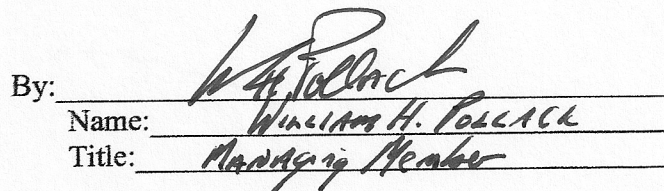 By: W H. Pollack
Name: William H. Pollack
Title: Managing Member